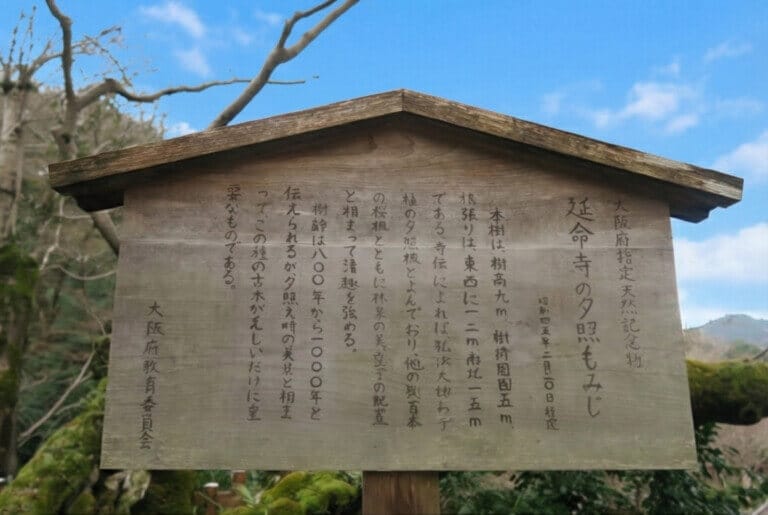 大阪府指定天然記念物
延命寺の夕照もみじ
昭和四五年二月二〇日指定
本樹は、樹高九m、樹持周囲五m、
根張りは、東西に一二m南北一五m
である。寺伝によれば、弘法大
植の夕照楓とよんでおり、他の数百本
の桜楓とともに林泉の美、堂宇の配置
と相まって清趣を強める。
樹齢は八〇〇年から一〇〇〇年と
伝えられるが夕照え時の美観と相ま
ってこの種の古木が乏しいだけに重
要なものである。
大阪府教育委員会